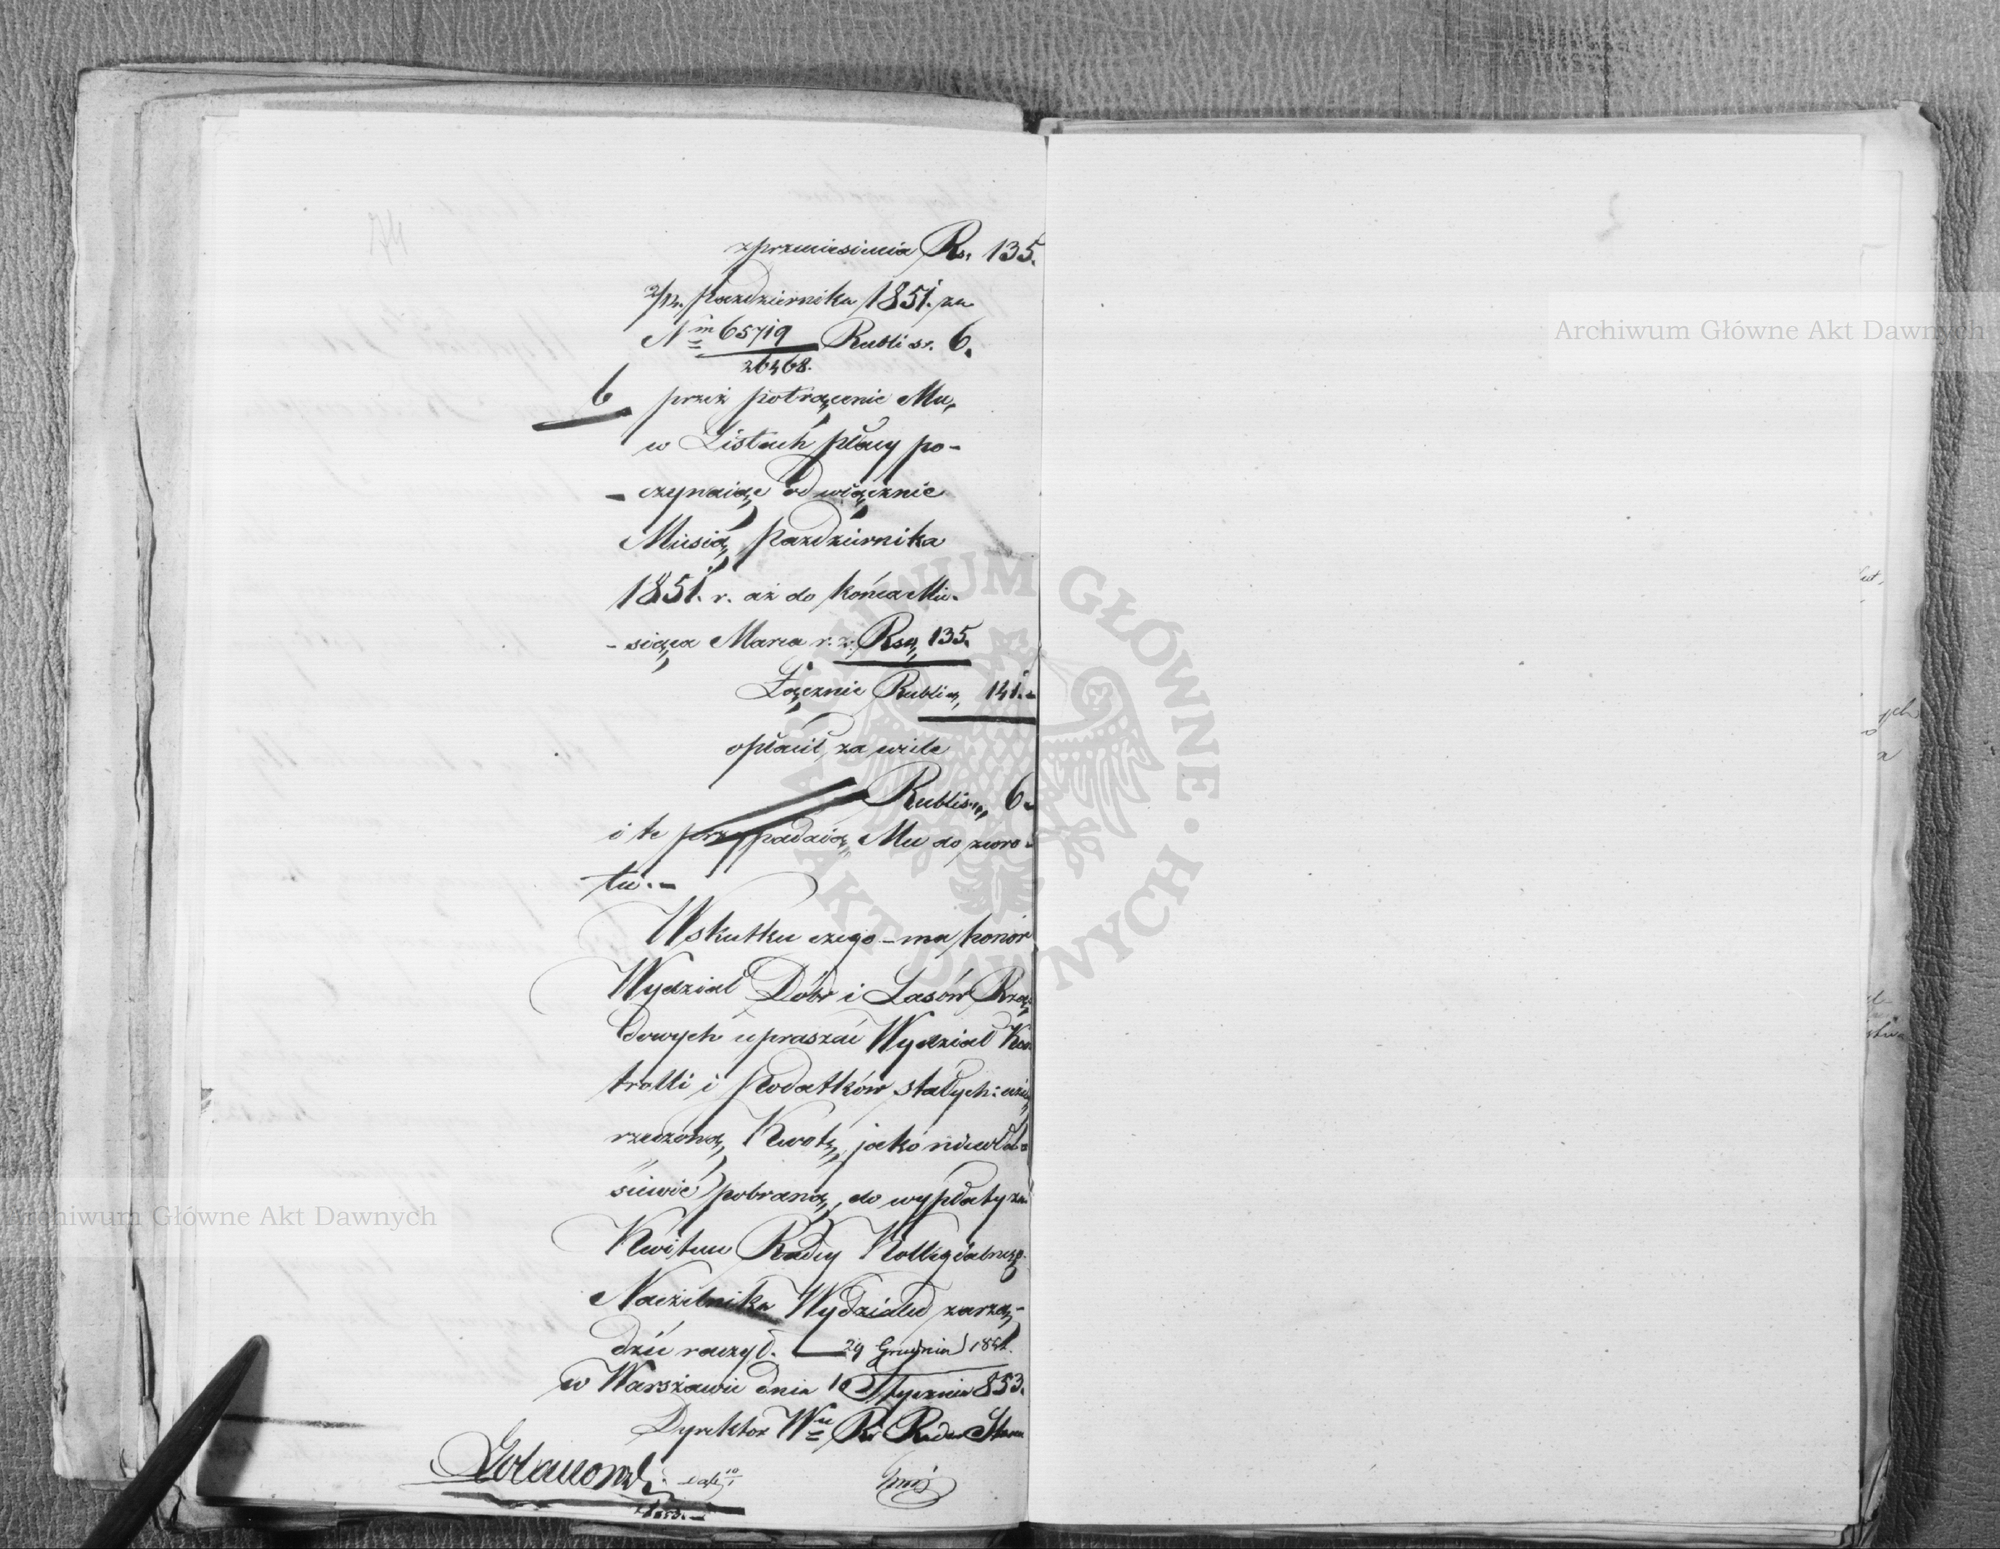 z przeniesienia Rs. 135.
2/14. Października 1851. za
N<sup>m</sup> 65719 Rubli sr. 6.
26468.
6 przez potrącenie Mu,
w Listach płacy po-
- czynaiąc od włącznie
Miesią, Października
1851. r. aż do końca Mie-
- siąca Marca r. z. Rsr, 135.
Łącznie Rubli sr, 141.-
opłacił, za wiele
Rubli sr, 6-
i te przypadaią, Mu do zwro-
tu.-
Wskutku czego - ma honor
Wydział Dóbr i Lasów Rzą-
dowych upraszać Wydział Kon-
trolli i Podatków stałych:
rzeczoną, Kwotę, jako niewła-
ściwie pobraną, do wypłaty za
Kwitem Radcy Kollegialnego
Naczelnika Wydziału zarzą-
dzić raczył. 29 Grudnia 185
w Warszawie dnia 10 Stycznia 853.
Dyrektor W<sup>łu</sup> Rz. Radca Stanu
Archiwum Główne Akt Dawnych
Archiwum Główne Akt Dawnych
ARCHIWUM GŁÓWNE · AKT DAWNYCH ·